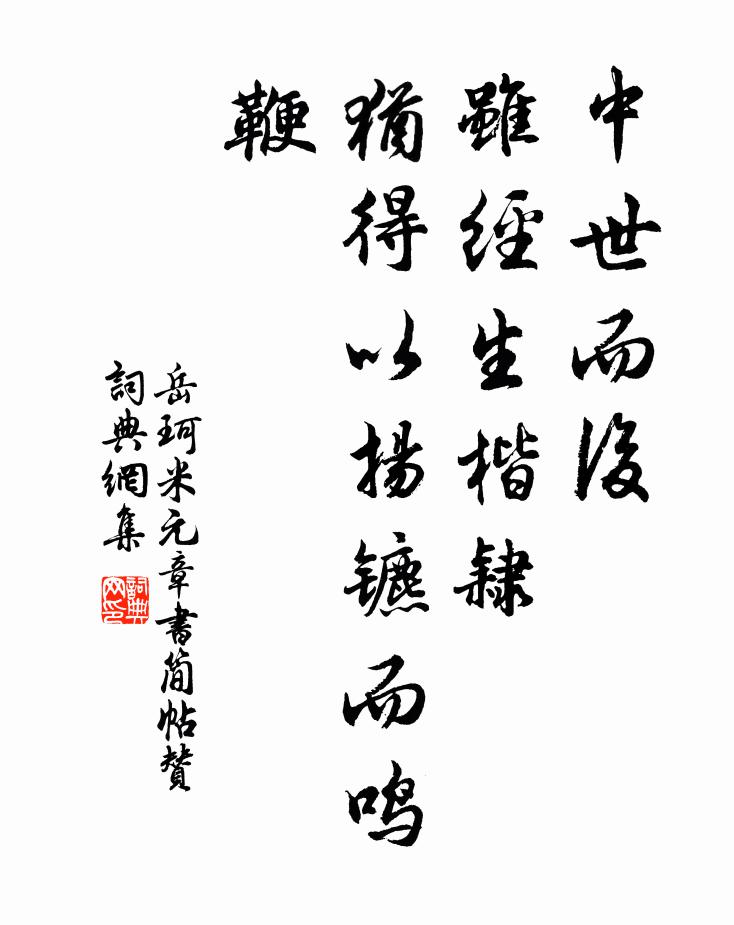 中世而後
雖經生楷隸
猶得以揚鑣而鸣
鞭
岳珂米元章書简帖贊
詞典網集
詞典网印